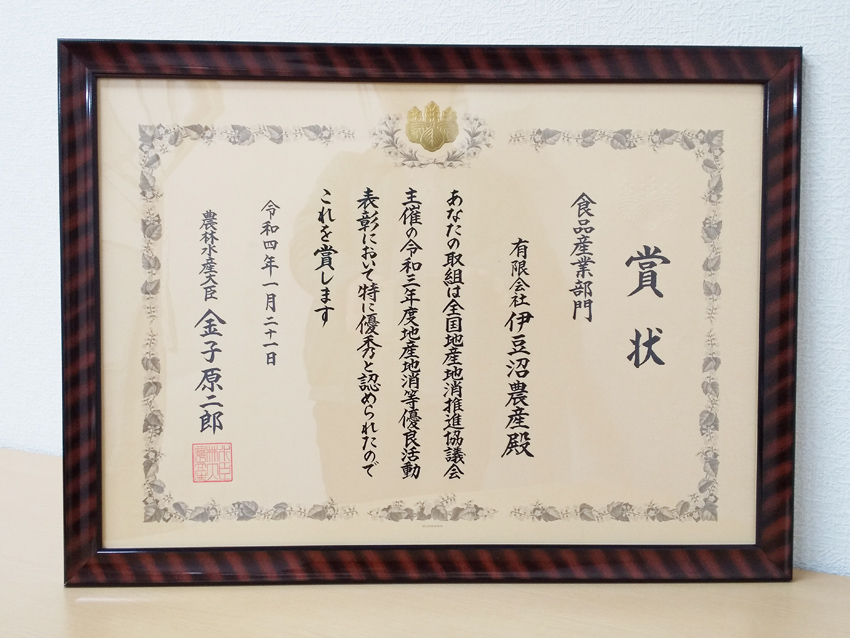 賞状
食品産業部門
有限会社 伊豆沼農産殿
あなたの取組は全国地産地消推進協議会
主催の令和三年度地産地消等優良活動
表彰において特に優秀と認められたので
これを賞します
令和四年一月二十一日
農林水産大臣 金子原二郎